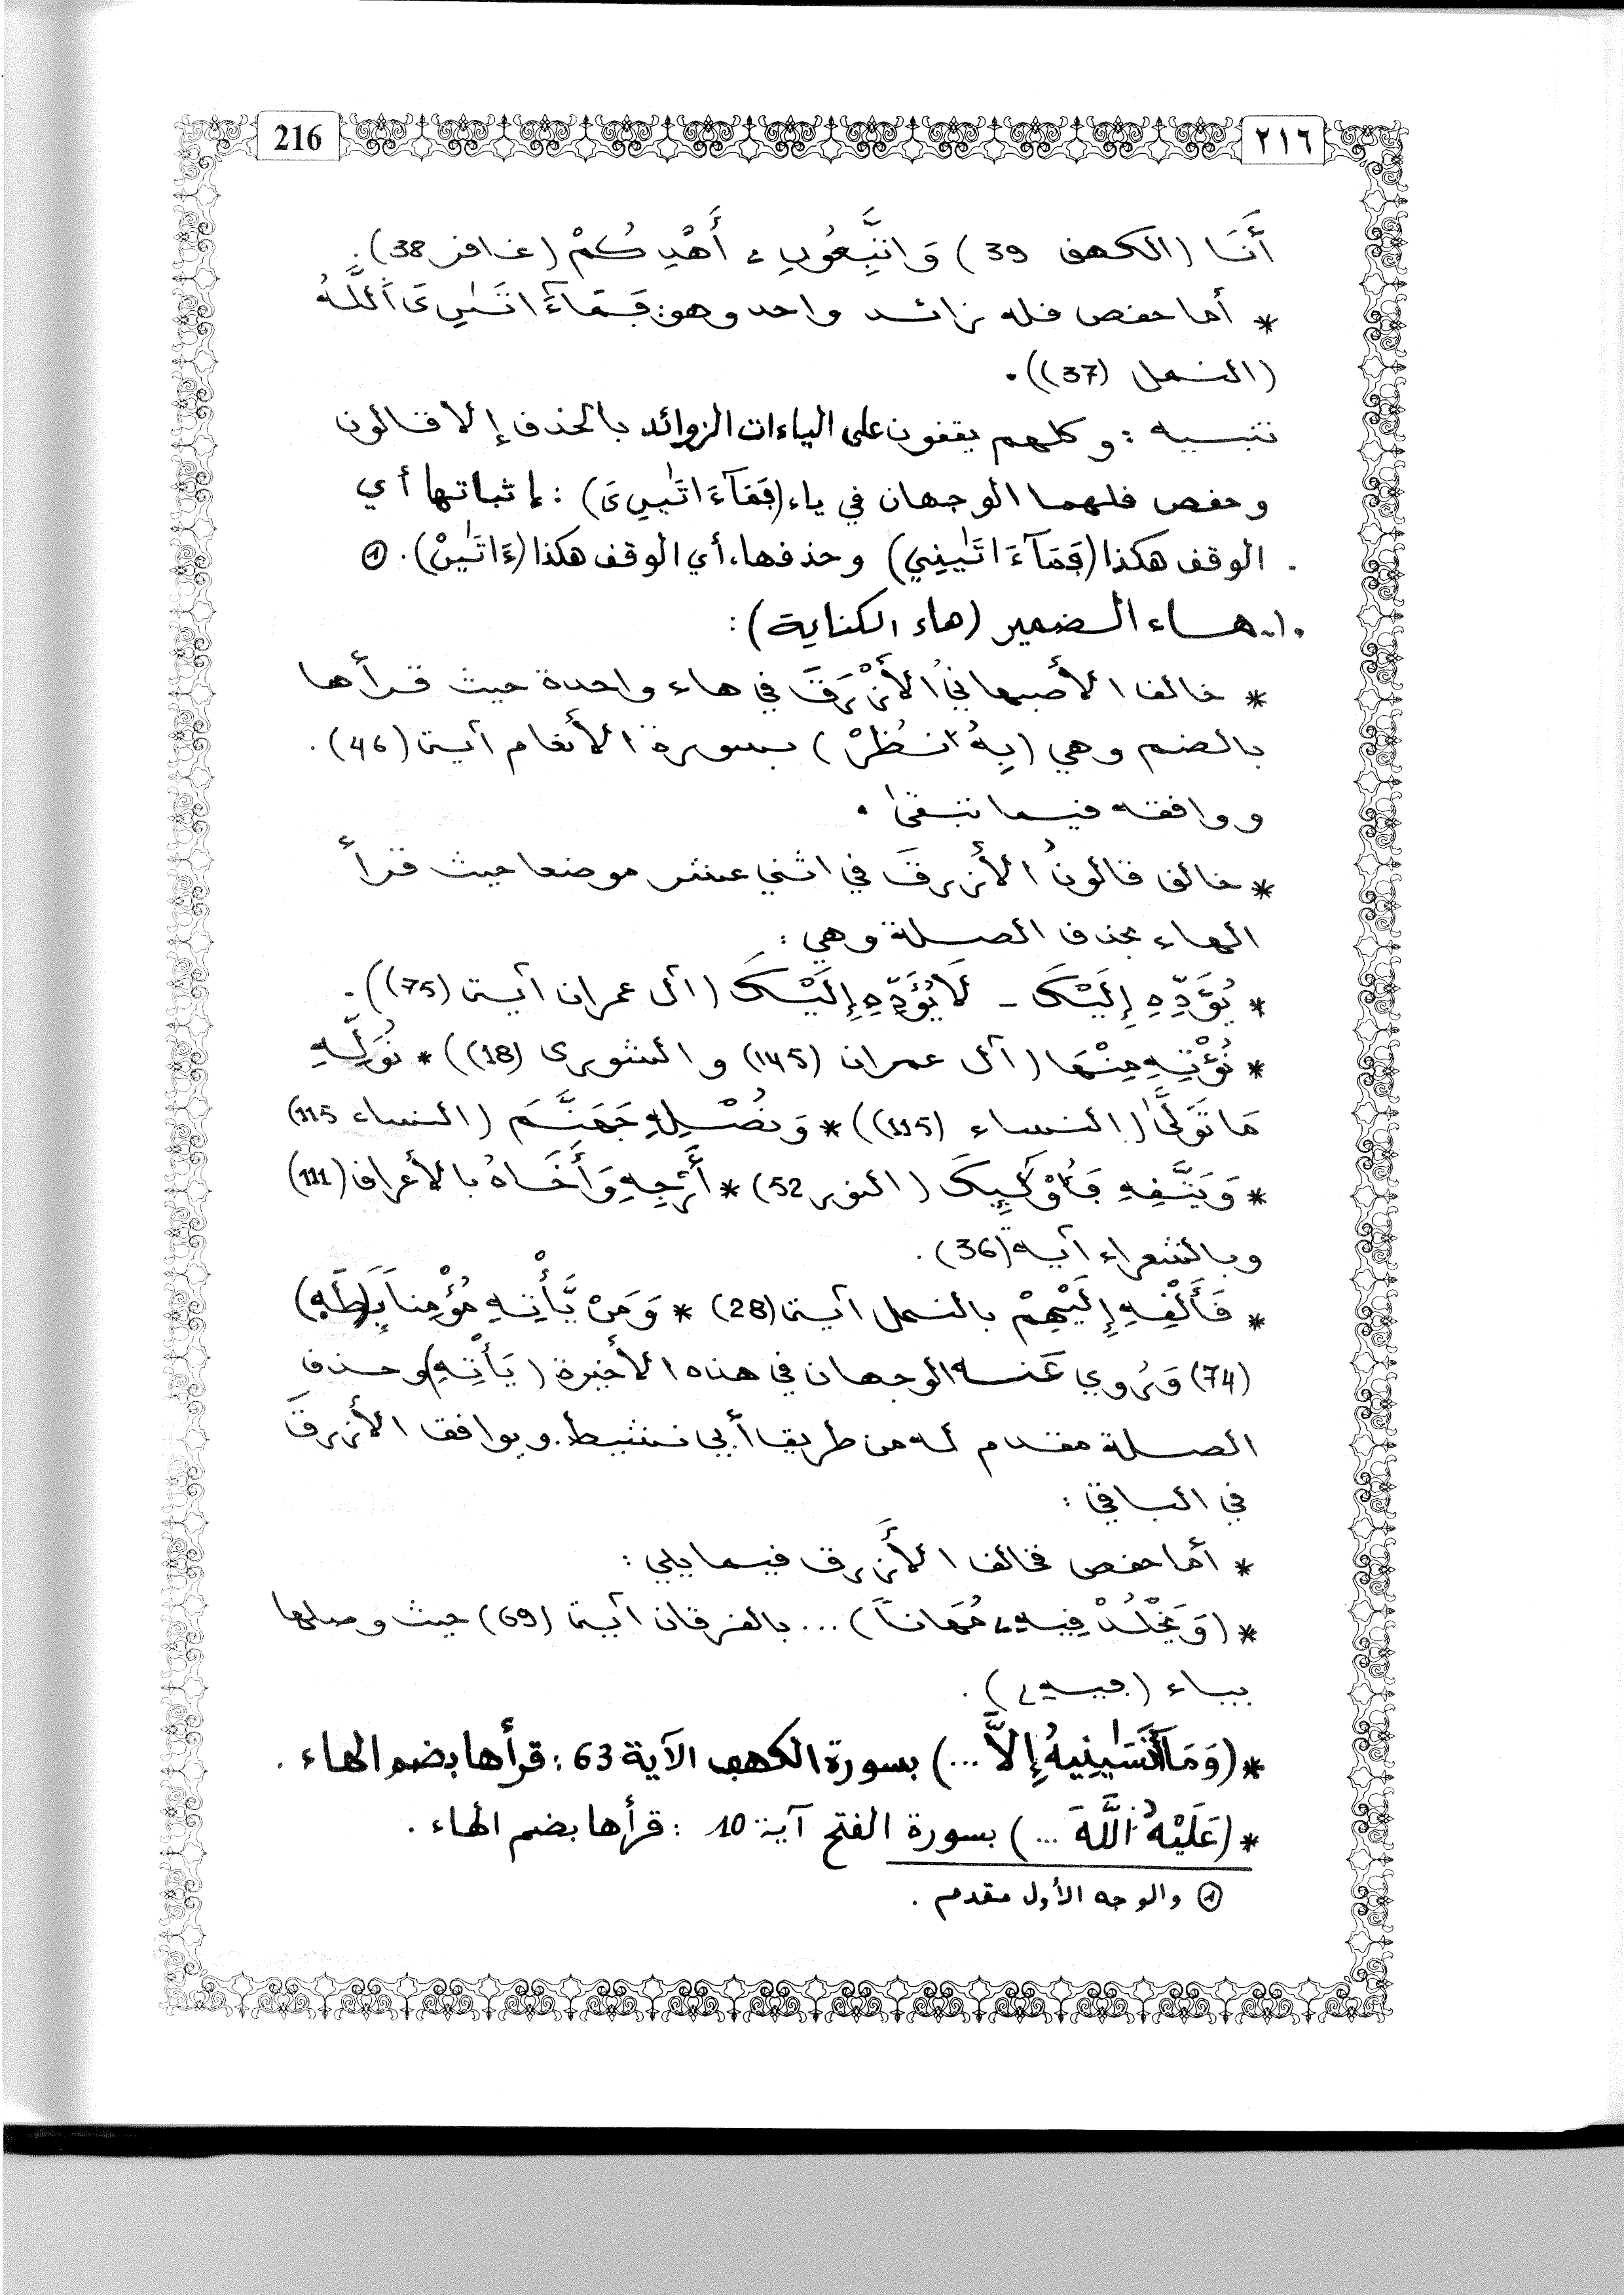 216
٢١٦
أَنَا (الكهف 39) وَاتَّبِعُونِ ے أَهْدِكُمْ (غافر 38).
* أما حفص فله زائد واحد وهو: فَمَآءَاتَىٰنِۦَ اَللَّهُ
(النمل (37)).
تنبيه: وكلهم يقفون على الياءات الزوائد بالحذف إلا قالون
وحفص فلهما الوجهان في ياء (فَمَآءَاتَىٰنِۦَ): إثباتها أي
الوقف هكذا (فَمَآءَاتَىٰنِي) وحذفها، أي الوقف هكذا (ءَاتَىٰنْ). ①
10. هاء الضمير (هاء الكناية):
* خالف الأصبهانيُ الأَزْرَقَ في هاء واحدة حيث قرأها
بالضم وهي (بِهُ انظُرْ) بسورة الأنعام آية (46).
ووافقه فيما تبقىٰ.
* خالف قالونُ الأَزرقَ في اثني عشر موضعا حيث قرأ
الهاء بحذف الصلة وهي:
* يُؤَدِّهِ إِلَيْكَ - لَا يُؤَدِّهِ إِلَيْكَ (آل عمران آية (75)).
* نُؤْتِهِ مِنْهَا (آل عمران (145) والشورى (18)) * نُوَلِّهِ
مَا تَوَلَّىٰ (النساء (115)) * وَنُصْلِهِ جَهَنَّمَ (النساء 115)
* وَيَتَّقِهِ فَأُوْلَٰئِكَ (النور 52) * أَرْجِهِ وَأَخَاهُ بالأعراف (111)
وبالشعراء آية (36).
* فَأَلْقِهِ إِلَيْهِمْ بالنمل آية (28) * وَمَنْ يَّأْتِهِ مُؤْمِناً بـ(طَهِ)
(74) وَرُوي عَنه الوجهان في هذه الأخيرة (يَأْتِهِ) وحذف
الصلة مقدم له من طريق أبي نشيط. ويوافق الأزرقَ
في الباقي:
* أما حفص فخالف الأَزرق فيما يلي:
* (وَيَخْلُدْ فِيهِ ے مُهَاناً) ... بالفرقان آية (69) حيث وصلها
بياء (فيه ے).
* (وَمَآ أَنْسَىٰنِيهُ إِلَّا ...) بسورة الكهف الآية 63: قرأها بضم الهاء.
* (عَلَيْهُ اللَّهَ ...) بسورة الفتح آية 10: قرأها بضم الهاء.
① والوجه الأول مقدم.